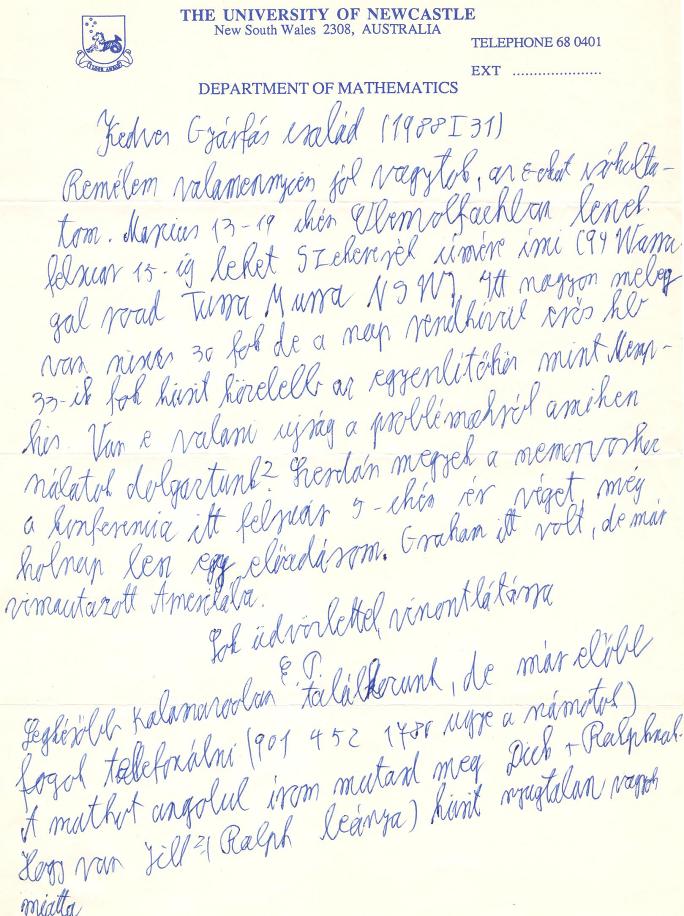 THE UNIVERSITY OF NEWCASTLE
New South Wales 2308, AUSTRALIA
TELEPHONE 68 0401
EXT ......................
DEPARTMENT OF MATHEMATICS
Kedves Gyárfás család (1988 I 31)
Remélem valamennyien jól vagytok, az
tom. Marcius 13-19 ikén Oberwolfachban leszek.
februar 15-ig lehet Szekeresék címére írni (94 Warra
gal road Turra Murra NSW), Itt nagyon meleg
van nincs 30 fok de a nap rendkívül erős
33-ik fok kicsit közelebb az egyenlítőhöz mint Memp-
his. Van e valami ujság a problémákról amiken
nálatok dolgoztunk? Szerdán megyek a
a konferencia itt február 5-ikén ér véget, még
holnap lesz egy előadásom. Graham itt volt, de már
visszautazott Amerikába.
Sok üdvözlettel, viszontlátásra
E. P.
Legkésőbb Kalamazooban találkozunk, de már előbb
fogok telefonálni (901 452 1780 ugye a számotok)
A mathot angolul írom mutasd meg Dick + Ralphnak.
Hogy van Jill? (Ralph leánya) kicsit nyugtalan vagyok
miatta